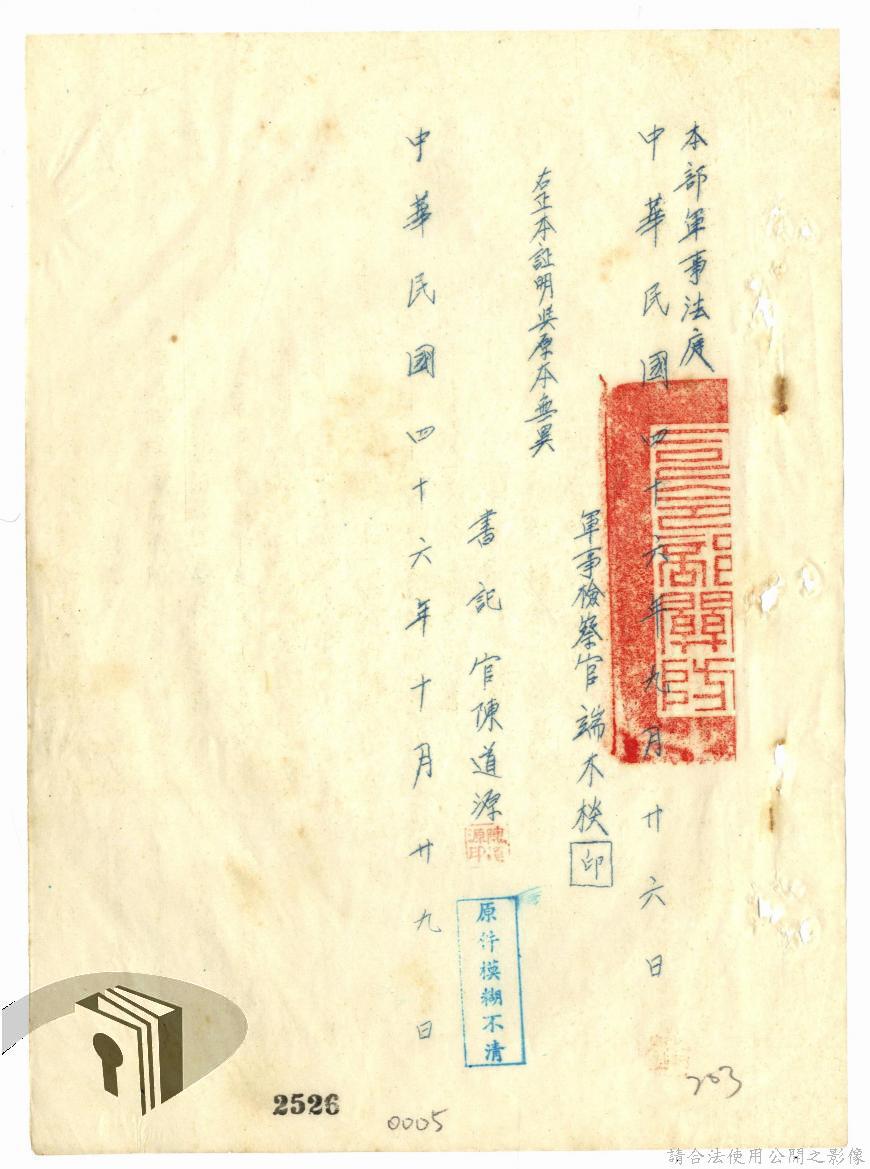 本部軍事法庭
中華民國四十六年九月廿六日
軍事檢察官端木棪印
右正本証明與原本無異
書記官陳道源
中華民國四十六年十月廿九日
原件模糊不清
203
2526
0005
請合法使用公開之影像